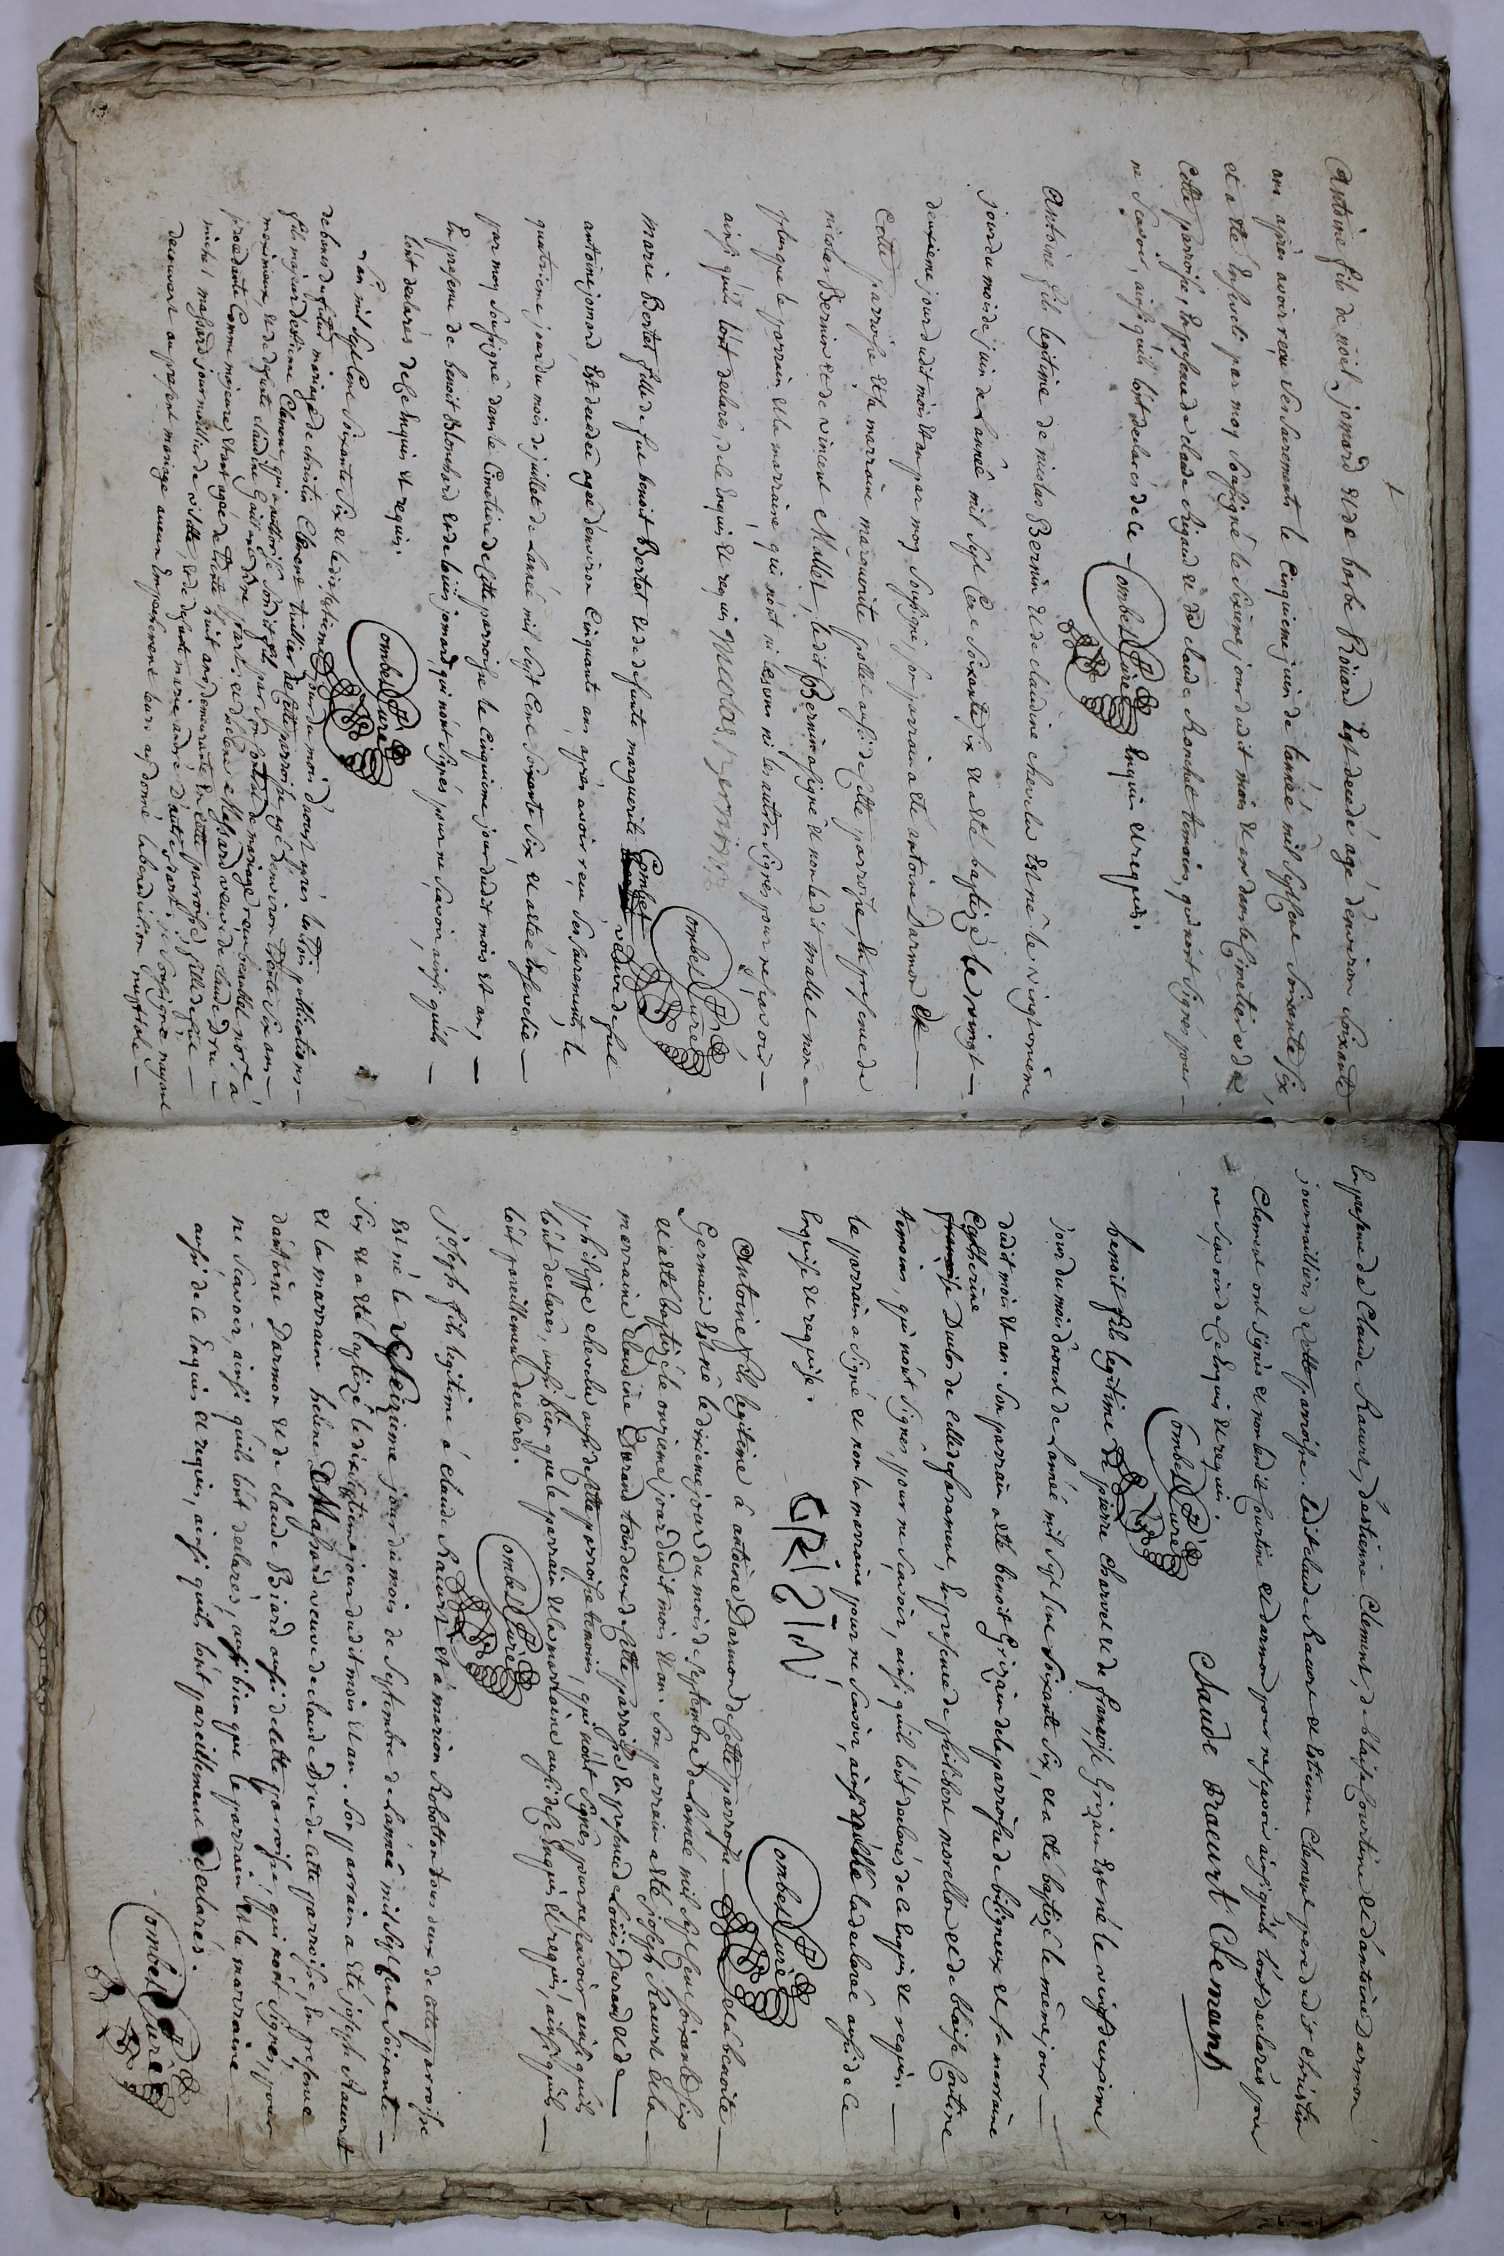 Antoine fils de noël jomard et de barbe Rivard Est decedé agé d'environ soixante
ans après avoir reçu ses sacrements le Cinquieme juin de l'année mil sept cent soixante six,
et a été Enseveli par moy soussigné le sixieme jour dudit mois et an dans le Cimetiere de
Cette parroisse, En presence de claude Rigaud et de claude Ronchet temoins, qui n'ont signés pour
ne scavoir, ainsi qu'ils l'ont declaré de ce Enquis et requis.
Combet Curé
Antoine fils legitime de nicolas Bernin et de claudine chevalu Est né le vingtunieme
jour du mois de juin de L'année mil sept Cent soixante six et a été baptizé le vingt
deuxieme jour dudit mois et an par moy soussigné, son parrain a été antoine Darmon de
Cette parroisse et la marraine marguerite pollet aussi de Cette parroisse, En presence de
nicolas Bernin et de vincent Mallet, ledit Bernin a signé et non ledit mallet non
plus que le parrain et la marraine qui n'ont ni les uns ni les autres signés pour ne scavoir
ainsi qu'ils l'ont declaré, de ce Enquis et requis nicolas bernin
Combet Curé
Marie Bertat fille de feu benoit Bertat et de defunte marguerite Combet veuve de feu
antoine jomard, Est decedée agée d'environ Cinquante ans après avoir reçu ses sacrements, le
quatrieme jour du mois de juillet de L'année mil sept Cent soixante six, et a été Ensevelie
par moy soussigné dans le Cimetiere de Cette parroisse le Cinquieme jour dudit mois et an,
En presence de benoit Blanchard et de loüis jomard, qui n'ont signés pour ne scavoir, ainsi qu'ils
l'ont declarés de Ce Enquis et requis.
Combet Curé
L'an mil sept Cent soixante six et le dix huitieme jour du mois d'aoust après les trois publications
de bans du futur mariage de christin Clement tuillier de Cette parroisse, agé d'environ trente six ans
fils majeur d'estienne Clement, qui authorise sondit fils par son contrat de mariage reçu
et de defunte claudine d'une part; et helene Massard veuve de claude Dru
procedante Comme majeure, etant agée de trente huit ans, demeurante En Cette parroisse, fille de feu
michel massard journaillier de et de defunte marie andré d'autre part; je soussigné n'ayant
decouvert au present mariage aucun Empechement leurs ay donné la benediction nuptiale
En presence de Claude Raeurt, d'estienne Clement, de blaise Courtine et d'antoine Darmon
journailliers de Cette parroisse. Ledit claude Raeurt et Estienne Clement pere dudit christin
Clement ont signés et non ledit Courtine et darmon pour ne scavoir ainsi qu'ils l'ont declarés pour
ne scavoir de Ce Enquis et requis. Claude Raeurt Clemant
Combet Curé
benoit fils legitime de pierre Charvet et de françoise Grizain Est né le vingt deuxieme
jour du mois d'aoust de L'année mil sept Cent soixante six, et a été baptizé le même jour
dudit mois et an. son parrain a été benoit Grizain de la parroisse de biligneux et la marraine
Catherine
françoise Duclos de celle de faramans, En presence de philibert morellon et de blaise Courtine
temoins, qui n'ont signés, pour ne scavoir, ainsi qu'ils l'ont declarés de Ce Enquis et requis.
le parrain a signé et non la marraine pour ne scavoir, ainsi qu'elle la declaré aussi de Ce
Enquise et requise. GRiZiN
Combet Curé
Antoine fils legitime à antoine Darmon de Cette parroisse et à benoite
Germain Est né le dixieme jour du mois de septembre de L'année mil sept Cent soixante six
et a été baptizé le onzieme jour dudit mois et an. son parrain a été joseph Raeurt et la
marraine claudine Durand tous deux de Cette parroisse En presence de Loüis Durand et de
philippe chevalu aussi de Cette parroisse temoins, qui n'ont signés pour ne scavoir ainsi qu'ils
l'ont declarés, aussi bien que le parrain et la marraine aussi de Ce Enquis et requis, ainsi qu'ils
l'ont pareillement declarés.
Combet Curé
joseph fils legitime à claude Raeurt et à marion Robatton tous deux de Cette parroisse
Est né le seizieme jour du mois de septembre de L'année mil sept Cent soixante
six et a été baptizé le dixseptieme jour dudit mois et an. son parrain a été joseph Raeurt
et la marraine helene Massard veuve de claude Dru de Cette parroisse, En presence
d'antoine Darmon et de claude Biard aussi de Cette parroisse, qui n'ont signés, pour
ne scavoir, ainsi qu'ils l'ont declarés, aussi bien que le parrain et la marraine
aussi de Ce Enquis et requis, ainsi qu'ils l'ont pareillement declarés.
Combet Curé